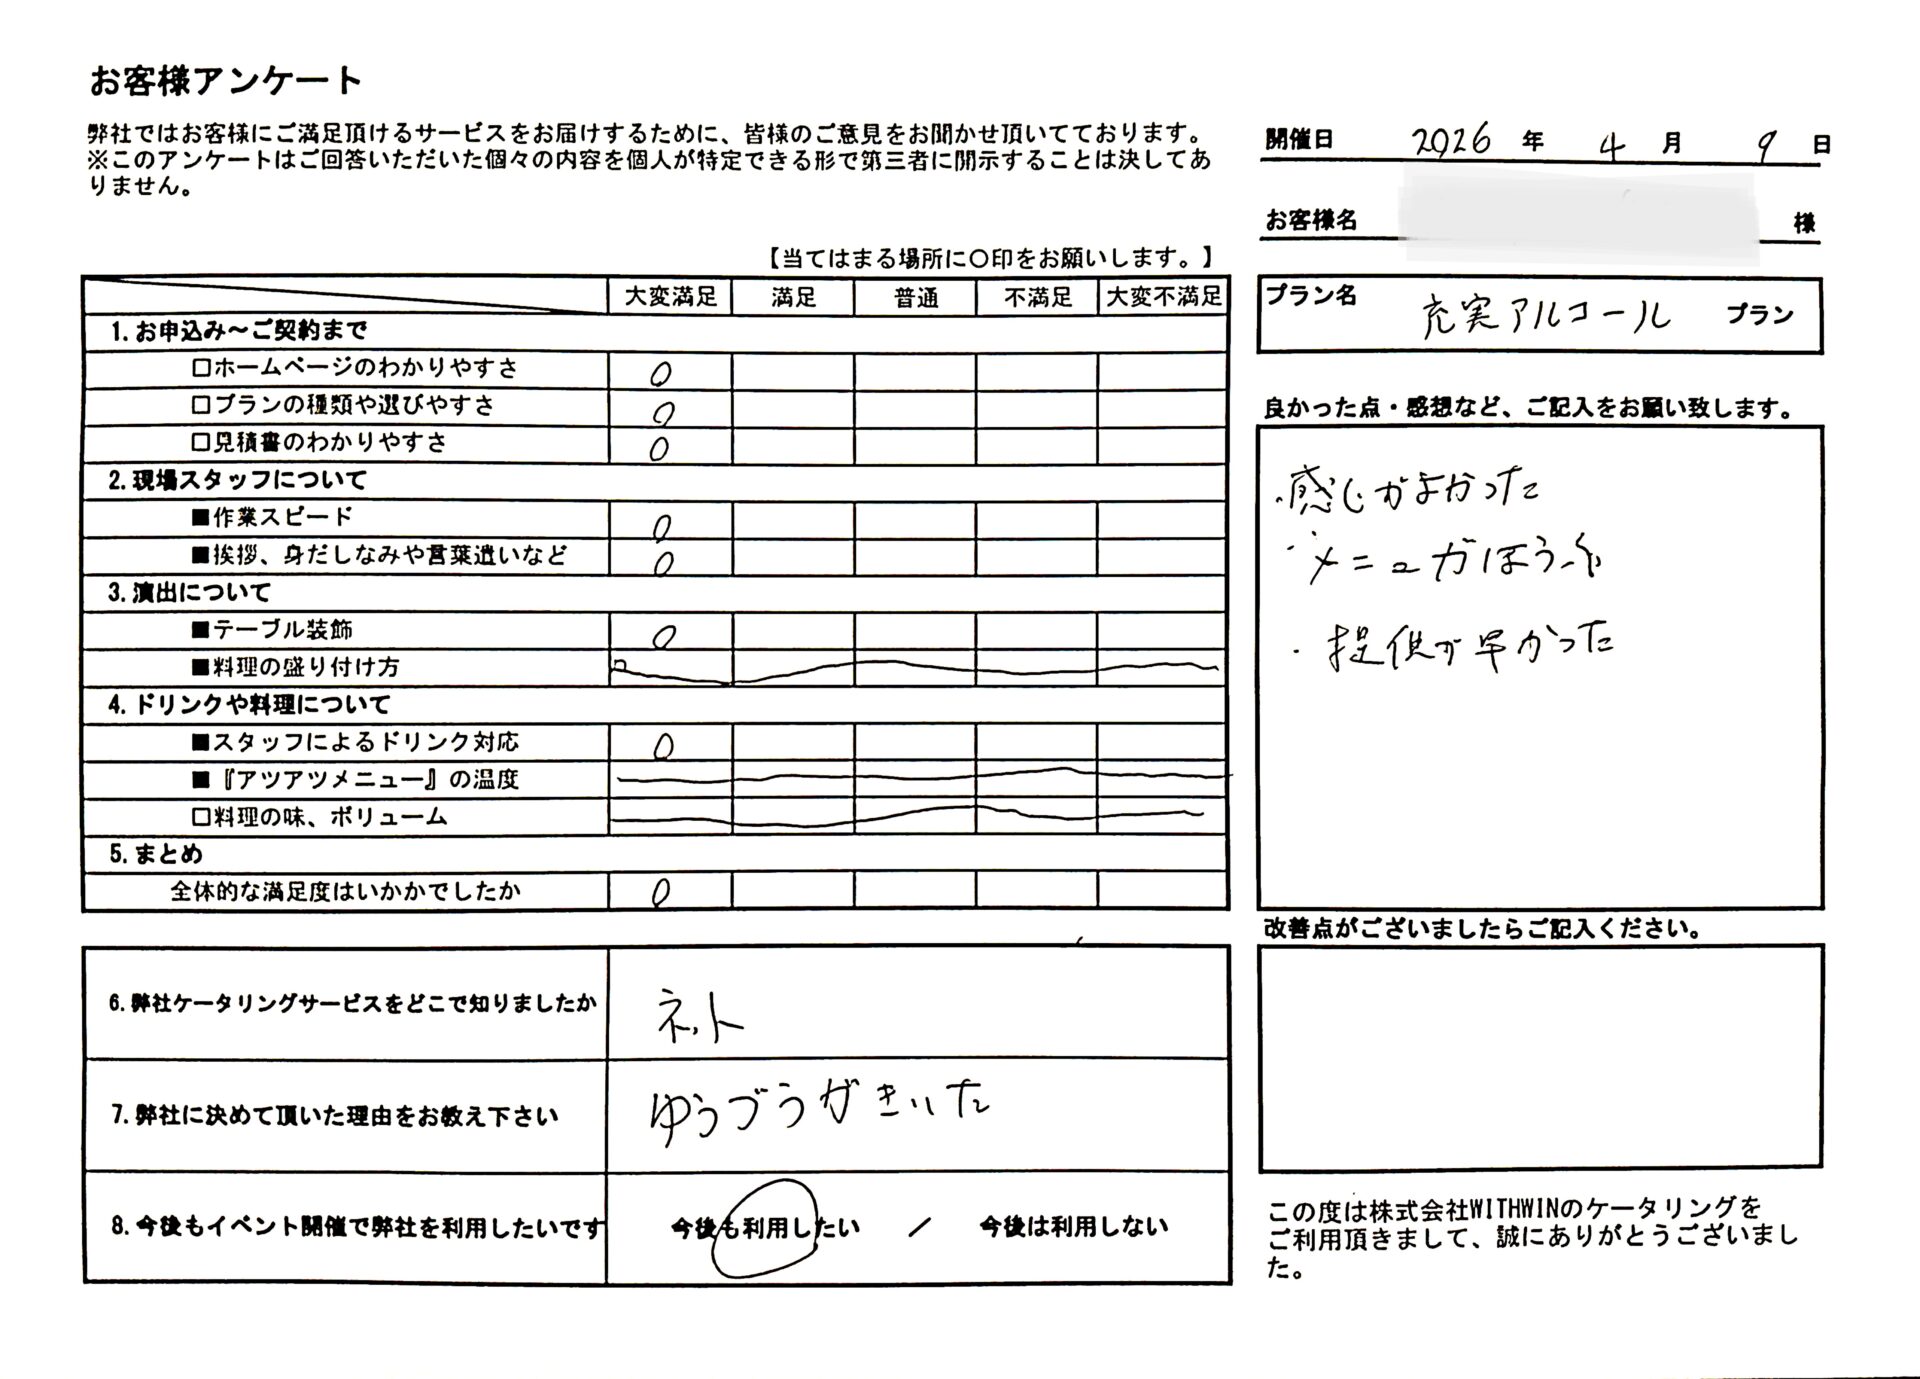 お客様アンケート
弊社ではお客様にご満足頂けるサービスをお届けするために、皆様のご意見をお聞かせ頂いてております。
※このアンケートはご回答いただいた個々の内容を個人が特定できる形で第三者に開示することは決してあ
りません。
開催日 2026 年 4 月 9 日
お客様名 様
【当てはまる場所に〇印をお願いします。】
プラン名 充実アルコール プラン
大変満足 満足 普通 不満足 大変不満足
1.お申込み～ご契約まで
□ホームページのわかりやすさ 〇
□プランの種類や選びやすさ 〇
□見積書のわかりやすさ 〇
2.現場スタッフについて
■作業スピード 〇
■挨拶、身だしなみや言葉遣いなど 〇
3.演出について
■テーブル装飾 〇
■料理の盛り付け方
4.ドリンクや料理について
■スタッフによるドリンク対応 〇
■『アツアツメニュー』の温度
□料理の味、ボリューム
5.まとめ
全体的な満足度はいかかでしたか 〇
良かった点・感想など、ご記入をお願い致します。
・感じがよかった
・メニューがほうふ
・提供が早かった
改善点がございましたらご記入ください。
6.弊社ケータリングサービスをどこで知りましたか ネット
7.弊社に決めて頂いた理由をお教え下さい ゆうづうがきいた
8.今後もイベント開催で弊社を利用したいです 今後も利用したい ／ 今後は利用しない
この度は株式会社WITHWINのケータリングを
ご利用頂きまして、誠にありがとうございまし
た。